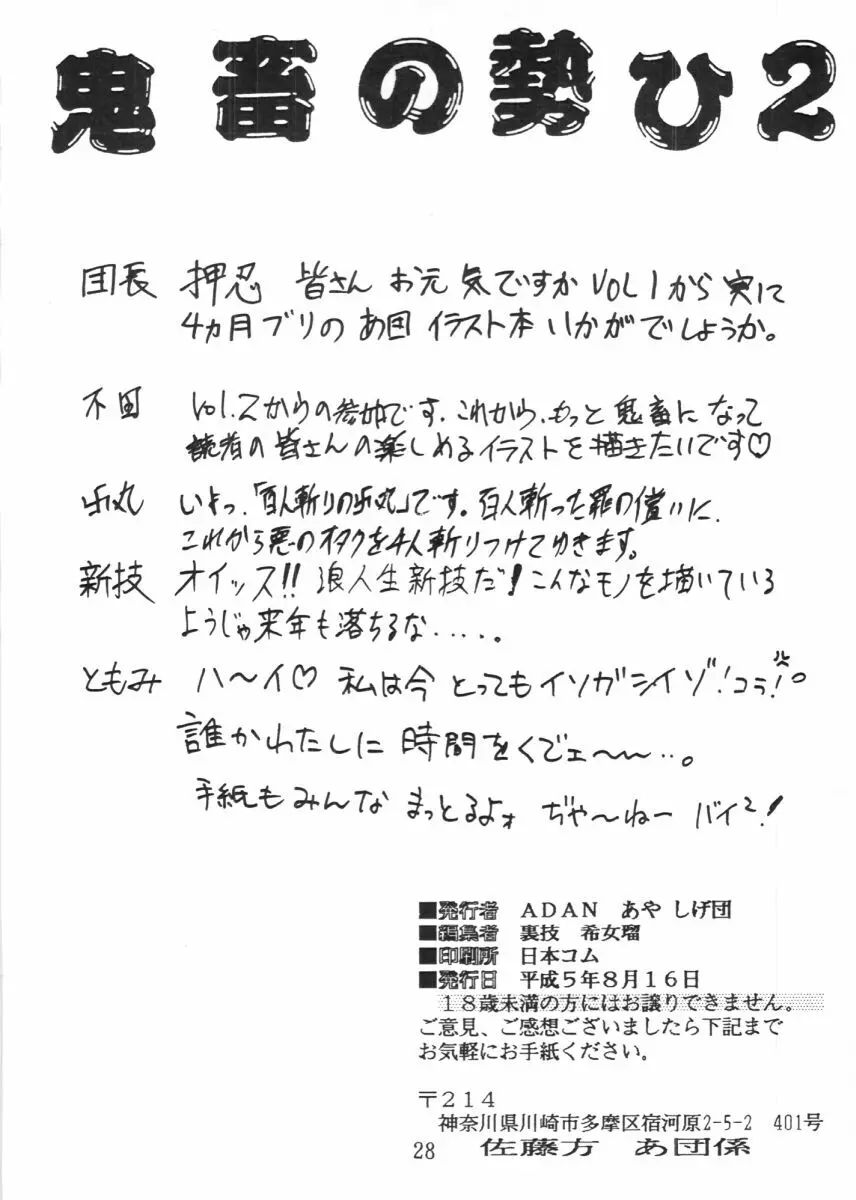 鬼畜の勢ひ2
団長 押忍 皆さん お元気ですか VOL1から実に
4ヵ月ブリの あ団 イラスト本 いかがでしょうか。
不田 Vol.2からの参加です。これから、もっと鬼畜になって
読者の皆さんの楽しめるイラストを描きたいです♡
いよっ、「百人斬りの丸」です。百人斬った罪の償いに、
これから悪のオタクを4人斬りつけてゆきます。
新技 オイッス!! 浪人生新技だ!こんなモノを描いている
ようじゃ来年も落ちるな‥‥‥。
ともみ ハ〜イ♡ 私は今 とってもイソガシイゾ!コラ!。
誰かわたしに 時間をくでェ〜〜‥。
手紙もみんな まっとるよォ ぢゃ〜ねー バイ2!
■発行者 ADAN あや しげ団
■編集者 裏技 希女瑠
■印刷所 日本コム
■発行日 平成5年8月16日
18歳未満の方にはお譲りできません。
ご意見、ご感想ございましたら下記まで
お気軽にお手紙ください。
〒214
神奈川県川崎市多摩区宿河原2-5-2 401号
28 佐藤方 あ団係